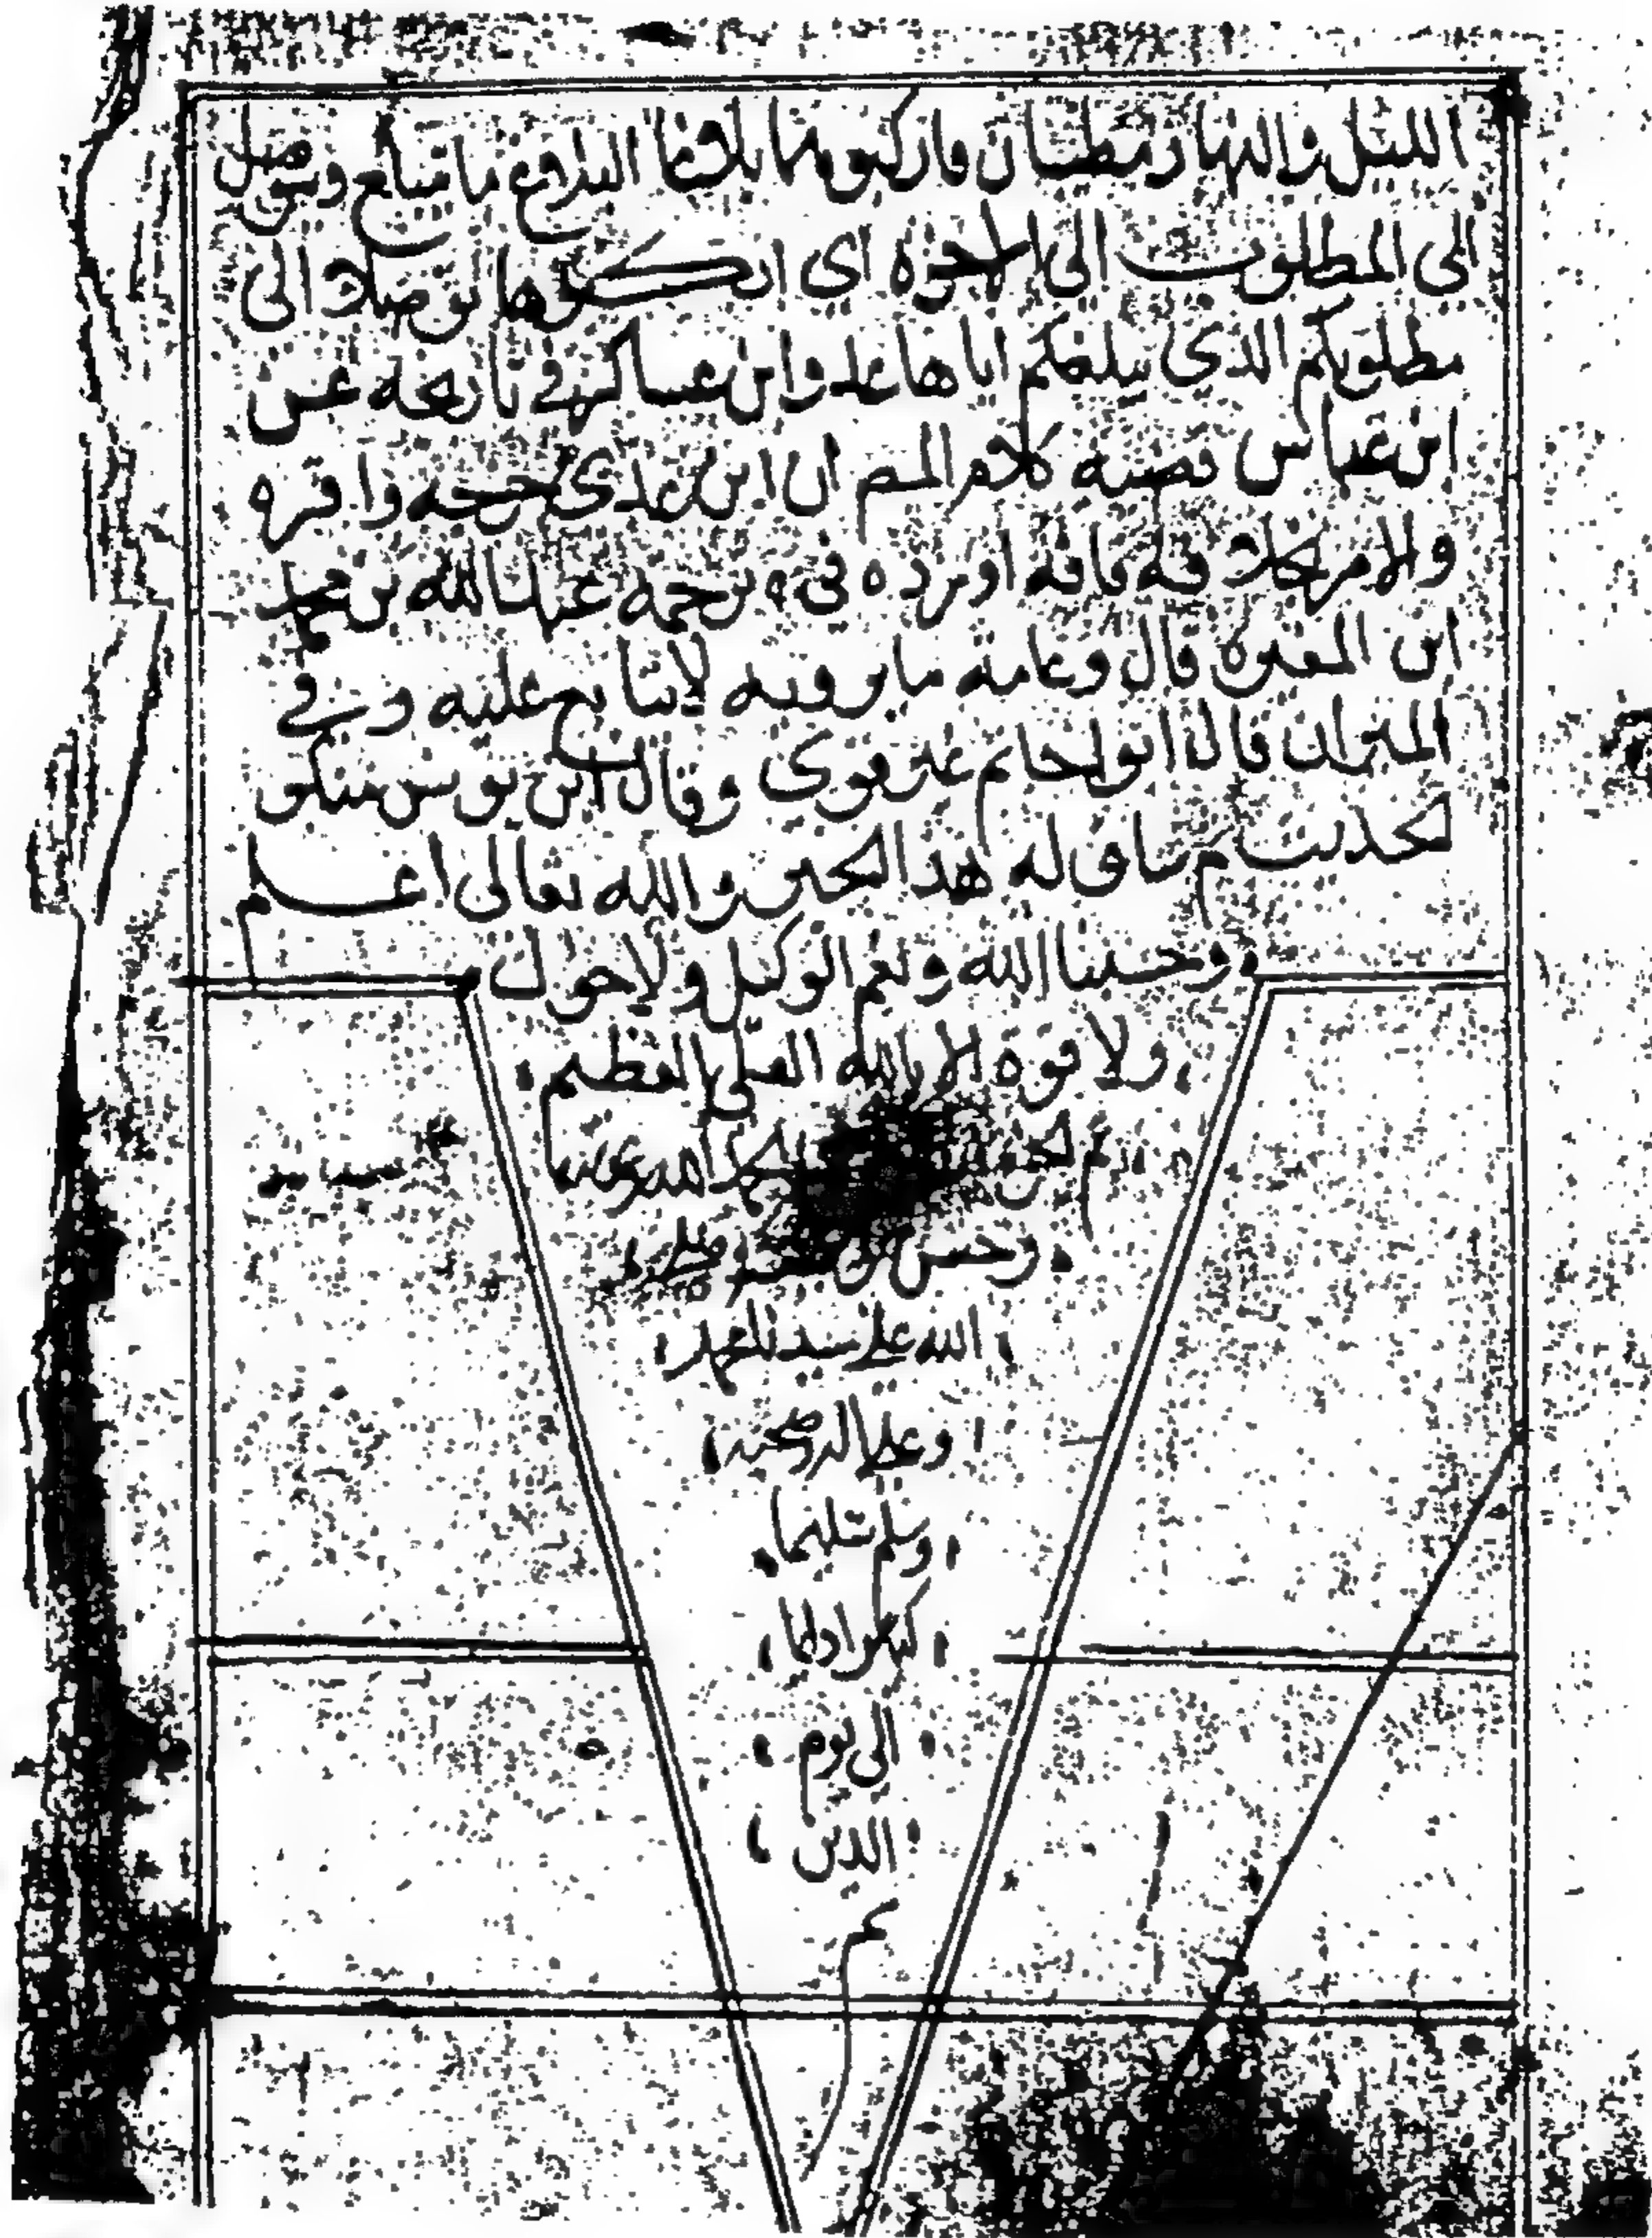 الليل والنهار مطيتان فاركبوهما بلاغا البلاغ ما يتبلغ ويتوصل
الى المطلوب الى الاخرة اي اركبوها توصلا الى
مطلوبكم الذي يبلغكم اياها عد وابن عساكر في تاريخه عن
ابن عباس قضية كلام المص ان ابن عدي خرجه واقره
والامر بخلافه فانه اورده في ترجمة عبد الله بن محمد
ابن المغيرة قال وعامة ما يرويه لا يتابع عليه وفي
الميزان قال ابو حاتم غير قوي وقال ابن يونس منكر
الحديث ثم ساق له هذا الخبر والله تعالى اعلم
وحسبنا الله ونعم الوكيل ولا حول
ولا قوة الا بالله العلي العظيم
تم الجزء بحمد الله وعونه
وحسن توفيقه وصلى
الله على سيدنا محمد
وعلى اله وصحبه
وسلم تسليما
كثيرا دايما
الى يوم
الدين
تم